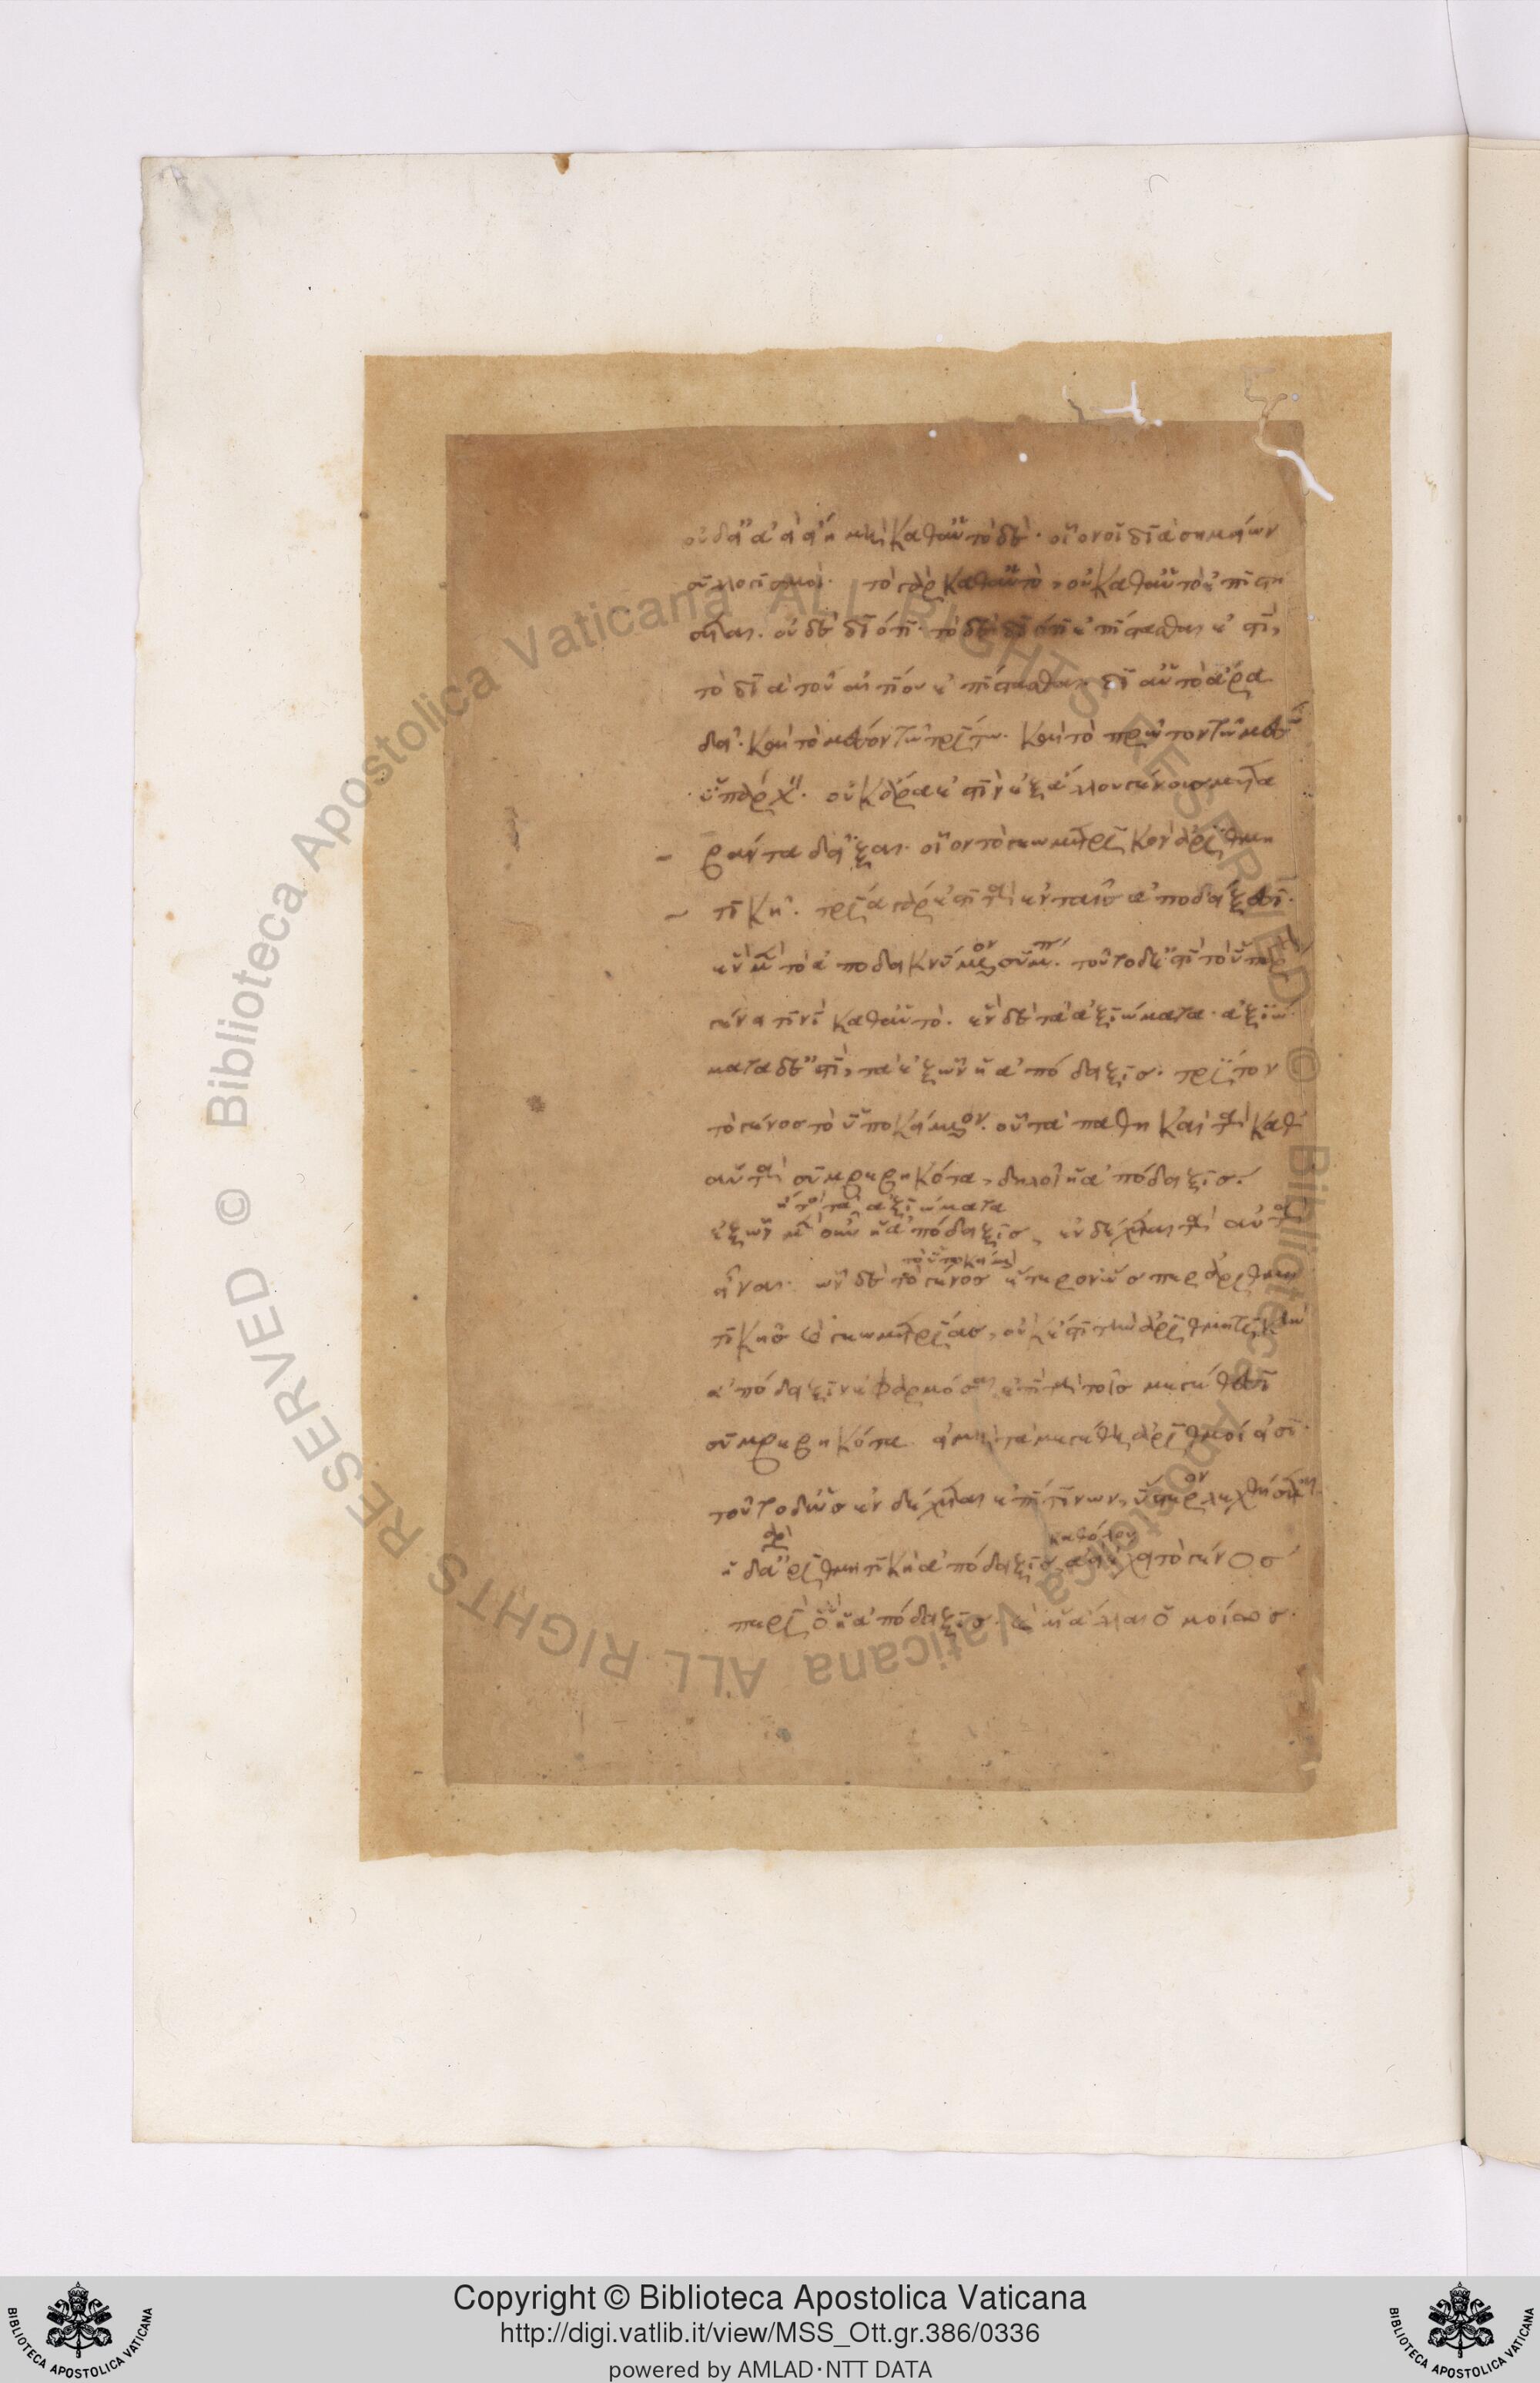 οὐδ' εἰ ἀεὶ εἴη μὴ καθ' αὑτὸ δέ. οἷον οἱ διὰ σημείων
συλλογισμοί. τὸ γὰρ καθ' αὑτὸ, οὐ καθ' αὑτὸ ἐπιστή
σεται. οὐδὲ διότι. τὸ δὲ διότι ἐπίστασθαι ἐστὶ,
τὸ διὰ τοῦ αἰτίου ἐπίστασθαι. δι' αὐτὸ ἄρα
δεῖ. καὶ τὸ μέσον τῷ τρίτῳ. καὶ τὸ πρῶτον τῷ μέσῳ
ὑπάρχειν. οὐκ ἄρα ἐστὶν ἐξ ἄλλου γένους μετα
βάντα δεῖξαι. οἷον τὸ γεωμετρικὸν ἀριθμη
τικῇ. τρία γάρ ἐστι τὰ ἐν ταῖς ἀποδείξεσι.
ἓν μὲν τὸ ἀποδεικνύμενον συμπ. τοῦτο δ' ἐστὶ τὸ ὑπάρχον
γένει τινὶ καθ' αὑτό. ἓν δὲ τὰ ἀξιώματα. ἀξιώ
ματα δ' ἐστὶ, τὰ ἐξ ὧν ἡ ἀπόδειξις. τρίτον
τὸ γένος τὸ ὑποκείμενον. οὗ τὰ πάθη καὶ τὰ καθ'
αὑτὰ συμβεβηκότα, δηλοῖ ἡ ἀπόδειξις.
ἤτοι τὰ ἀξιώματα
ἐξ ὧν μὲν οὖν ἡ ἀπόδειξις, ἐνδέχεται τὰ αὐτὰ
τὸ ὑποκείμενον
εἶναι. ὧν δὲ τὸ γένος ἕτερον ὥσπερ ἀριθμη
τικῆς καὶ γεωμετρίας, οὐκ ἔστι τὴν ἀριθμητικὴν
ἀπόδειξιν ἐφαρμόσαι ἐπὶ τὰ τοῖς μεγέθεσι
συμβεβηκότα. εἰ μὴ τὰ μεγέθη ἀριθμοί εἰσι.
τοῦτο δ' ὡς ἐνδέχεται ἐπί τινων, ὕστερον λεχθήσεται.
καθόλου
ἡ δ' ἀριθμητικὴ ἀπόδειξις ἀεὶ ἔχει τὸ γένος
περὶ ὃ ἡ ἀπόδειξις. καὶ αἱ ἄλλαι ὁμοίως.
Copyright © Biblioteca Apostolica Vaticana
http://digi.vatlib.it/view/MSS_Ott.gr.386/0336
powered by AMLAD·NTT DATA